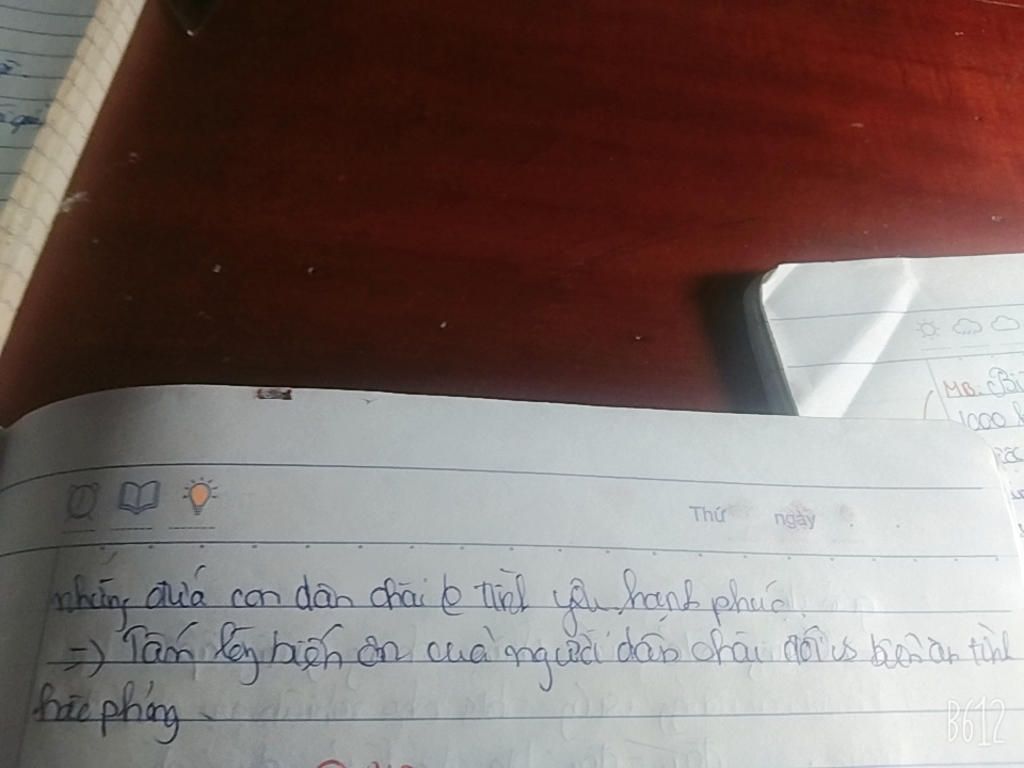 MB: Bi
1000
Thứ ngày
những đứa con dân chài = tình yêu, hạnh phúc.
=> Tấm lòng biết ơn của người dân chài đối vs biển ân tình
hào phóng
B612